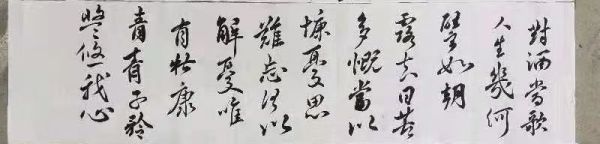 對酒當歌
人生幾何
譬如朝
露去日苦
多慨當以
慷憂思
難忘何以
解憂唯
有杜康
青青子衿
悠悠我心